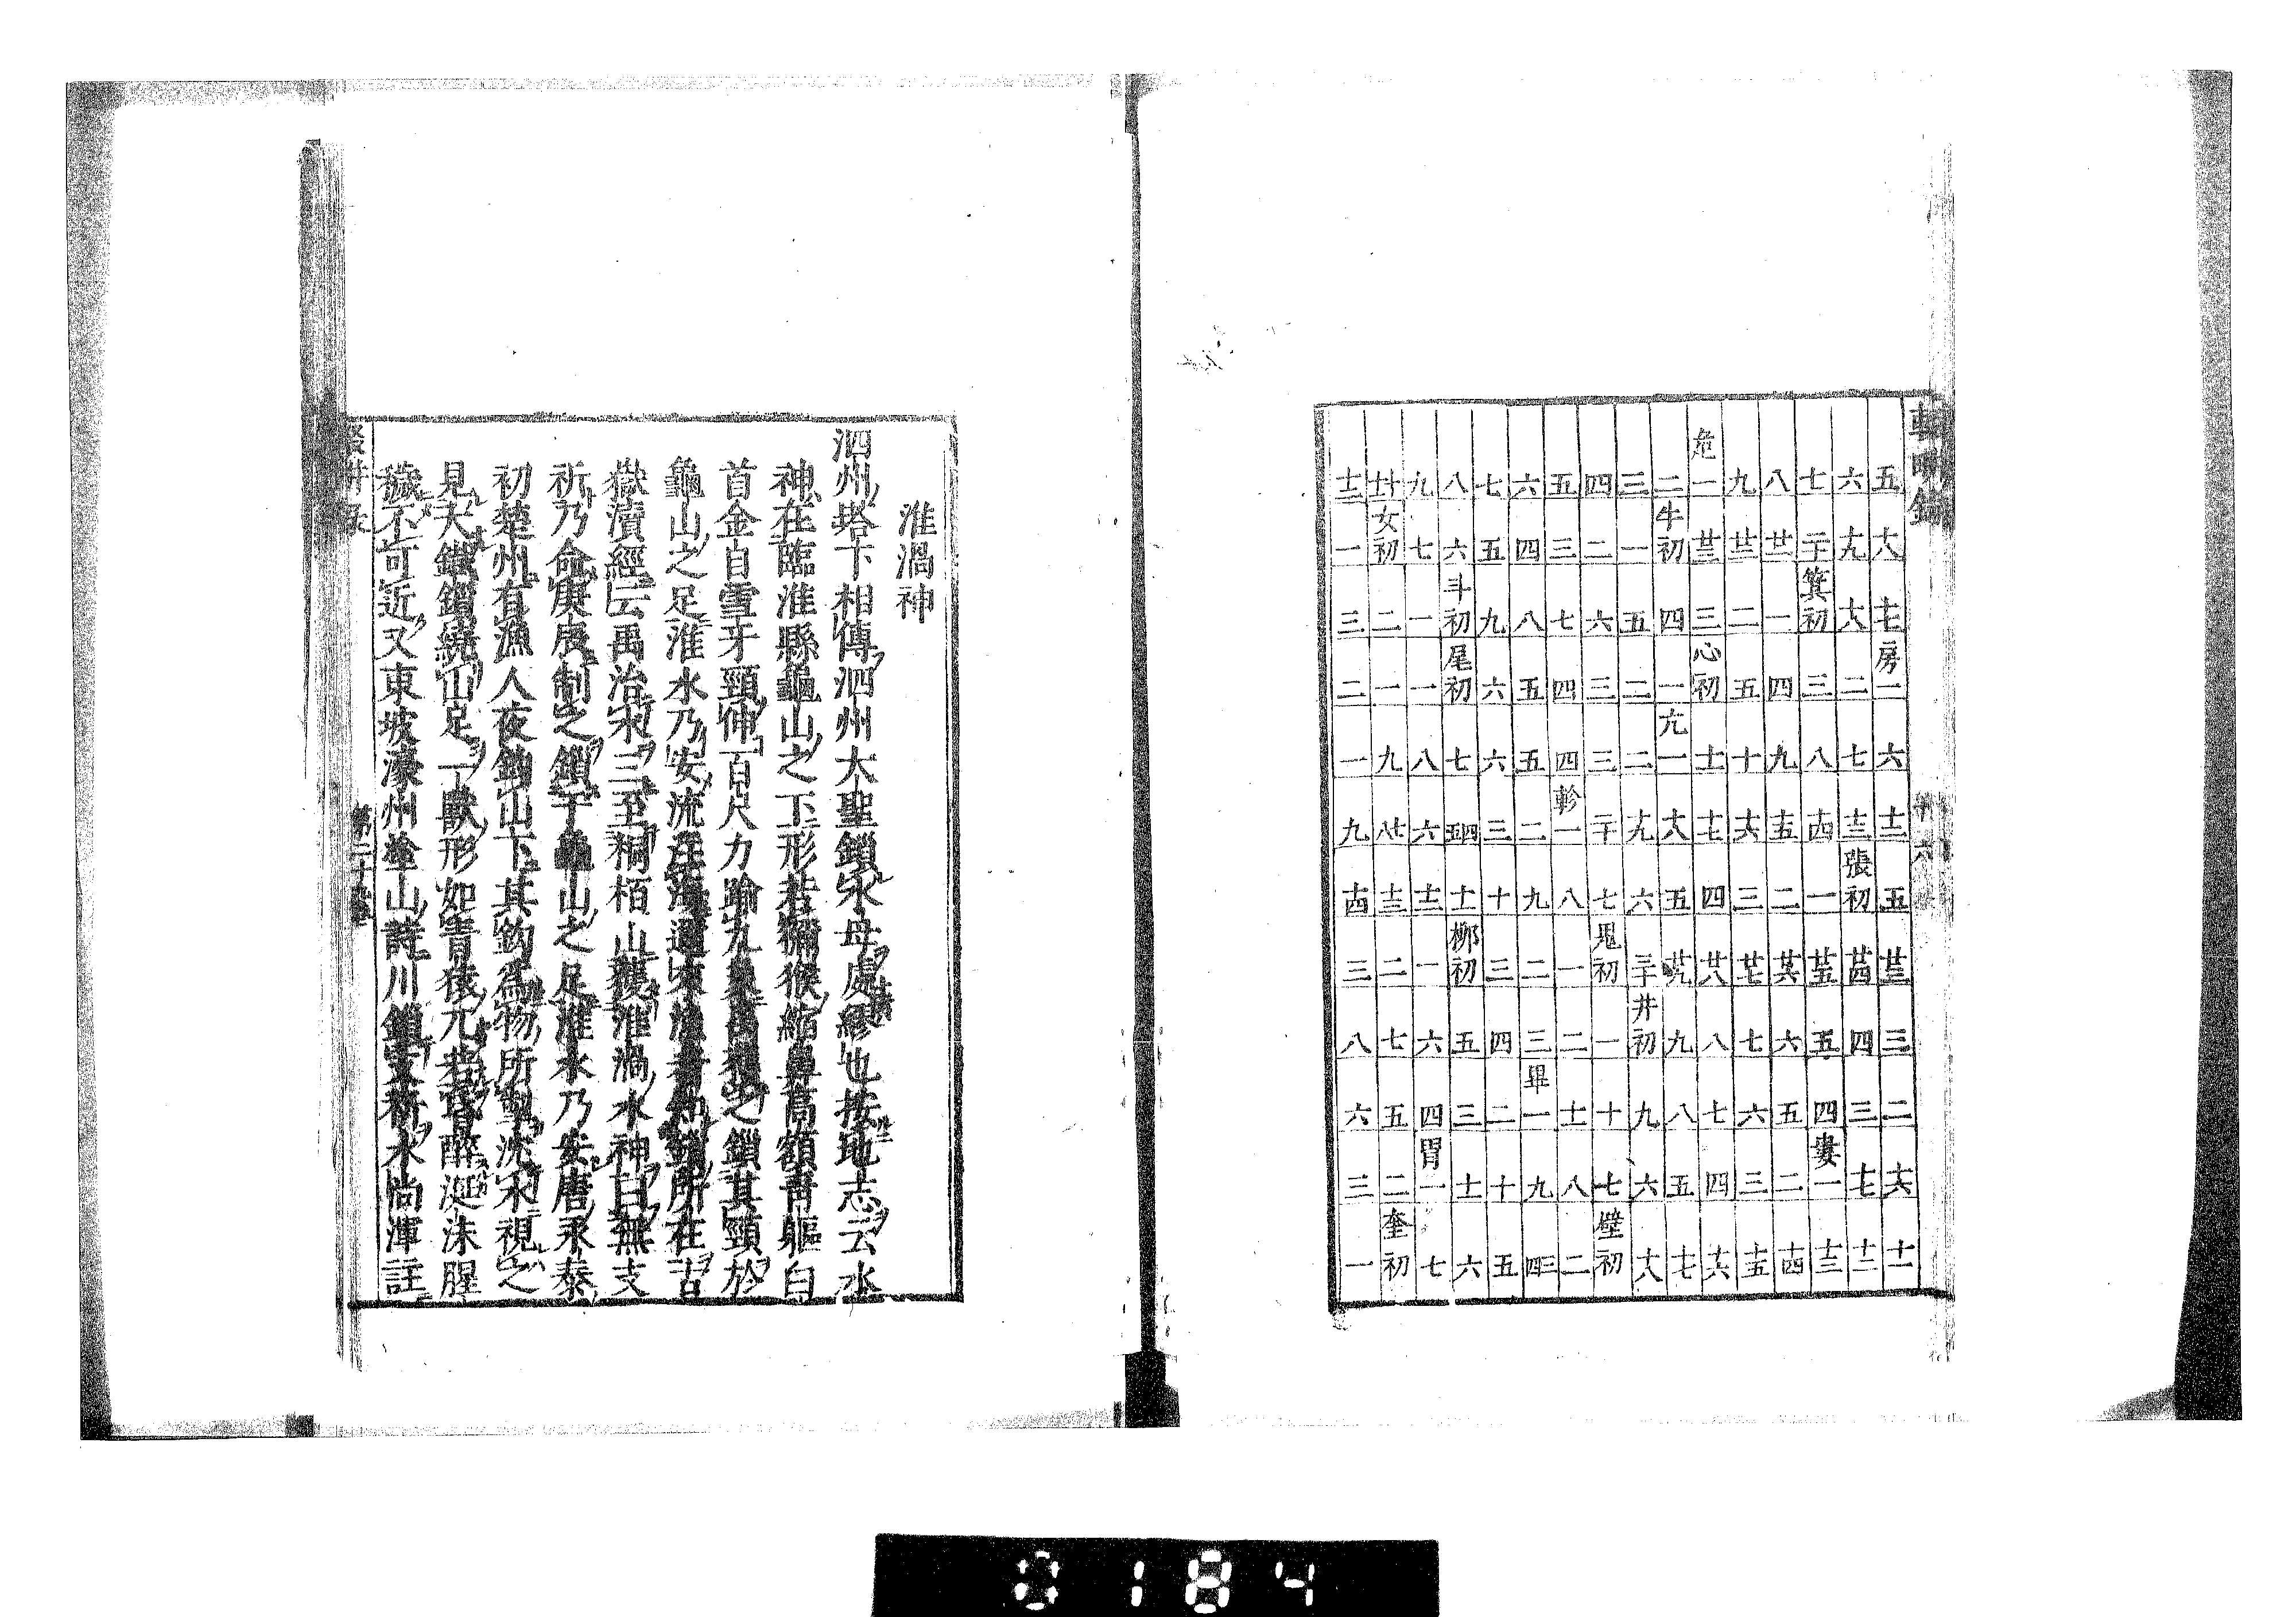 輟畊録
五 十八 十七 房一 六 十二 五 廿三 三 二 十六 十一
六 十九 十八 二 七 十三 張初 廿四 四 三 十七 十二
七 二十 箕初 三 八 十四 一 廿五 五 四 婁一 十三
八 廿一 一 四 九 十五 二 廿六 六 五 二 十四
九 廿二 二 五 十 十六 三 廿七 七 六 三 十五
危一 廿三 三 心初 十一 十七 四 廿八 八 七 四 十六
二 牛初 四 一 亢一 十八 五 廿九 九 八 五 十七
三 一 五 二 二 十九 六 三十 井初 九 六 十八
四 二 六 三 三 二十 七 鬼初 一 十 七 壁初
五 三 七 四 四 軫一 八 一 二 十一 八 二
六 四 八 五 五 二 九 二 三 畢一 九 三四
七 五 九 六 六 三 十 三 四 二 十 五
八 六 斗初 尾初 七 四五 十一 柳初 五 三 十一 六
九 七 一 一 八 六 十二 一 六 四 胃一 七
十 女初 二 一 九 七八 十三 二 七 五 二 奎初
十一 一 三 二 一 九 十四 三 八 六 三 一
淮渦神
泗州塔下相傳泗州大聖鎖水母處繆也按地志云水
神在臨淮縣龜山之下形若獼猴縮鼻高額青軀白
首金目雪牙頸伸百尺力踰九象禹獲之鎖其頸於
龜山之足淮水乃安流注海通來漁者知鎖所在古
嶽瀆經云禹治水三至桐栢山獲淮渦水神曰無支
祈乃命庚辰制之鎖于龜山之足淮水乃安唐永泰
初楚州有漁人夜釣山下其鈎為物所掣沈水視之
見大鐵鎖繞山足一獸形如青猿兀若昏醉涎沫腥
穢不可近又東坡濠州塗山詩川鎖支祈水尚渾註
輟畊录
第二十九